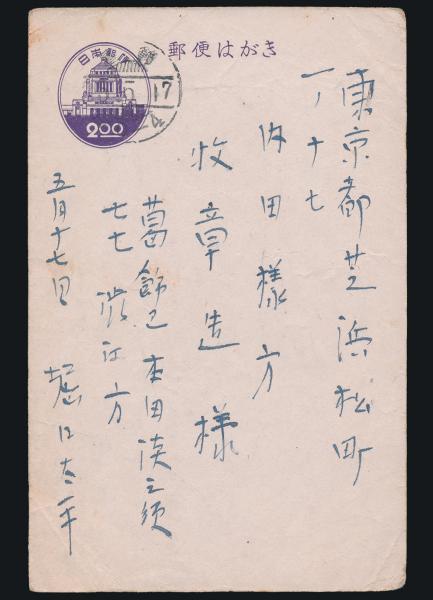 郵便はがき
日本郵便
2.00
17
東京都芝浜松町
一ノ十七
内田様方
牧章造様
葛飾区本田渋江須
七七 渋江方
五月十七日
堀口太平